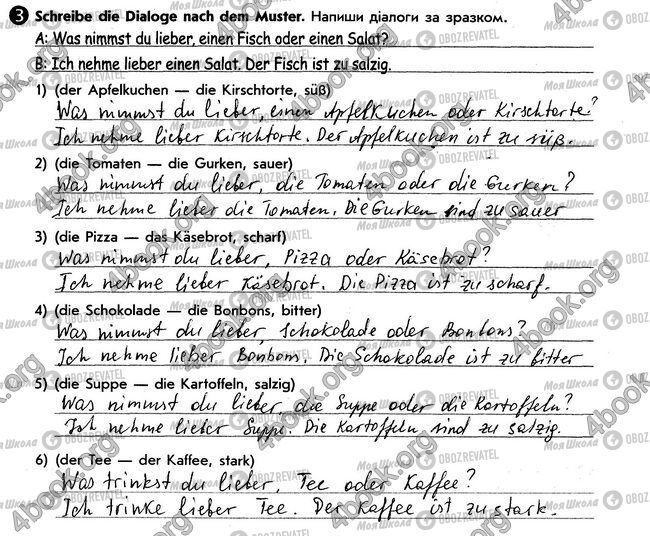 3 Schreibe die Dialoge nach dem Muster. Напиши діалоги за зразком.
A: Was nimmst du lieber, einen Fisch oder einen Salat?
B: Ich nehme lieber einen Salat. Der Fisch ist zu salzig.
1) (der Apfelkuchen — die Kirschtorte, süß)
Was nimmst du lieber, einen Apfelkuchen oder Kirschtorte?
Ich nehme lieber Kirschtorte. Der Apfelkuchen ist zu süß.
2) (die Tomaten — die Gurken, sauer)
Was nimmst du lieber, die Tomaten oder die Gurken?
Ich nehme lieber die Tomaten. Die Gurken sind zu sauer
3) (die Pizza — das Käsebrot, scharf)
Was nimmst du lieber, Pizza oder Käsebrot?
Ich nehme lieber Käsebrot. Die Pizza ist zu scharf.
4) (die Schokolade — die Bonbons, bitter)
Was nimmst du lieber, Schokolade oder Bonbons?
Ich nehme lieber Bonbons. Die Schokolade ist zu bitter
5) (die Suppe — die Kartoffeln, salzig)
Was nimmst du lieber, die Suppe oder die Kartoffeln?
Ich nehme lieber Suppe. Die Kartoffeln sind zu salzig.
6) (der Tee — der Kaffee, stark)
Was trinkst du lieber, Tee oder Kaffee?
Ich trinke lieber Tee. Der Kaffee ist zu stark.